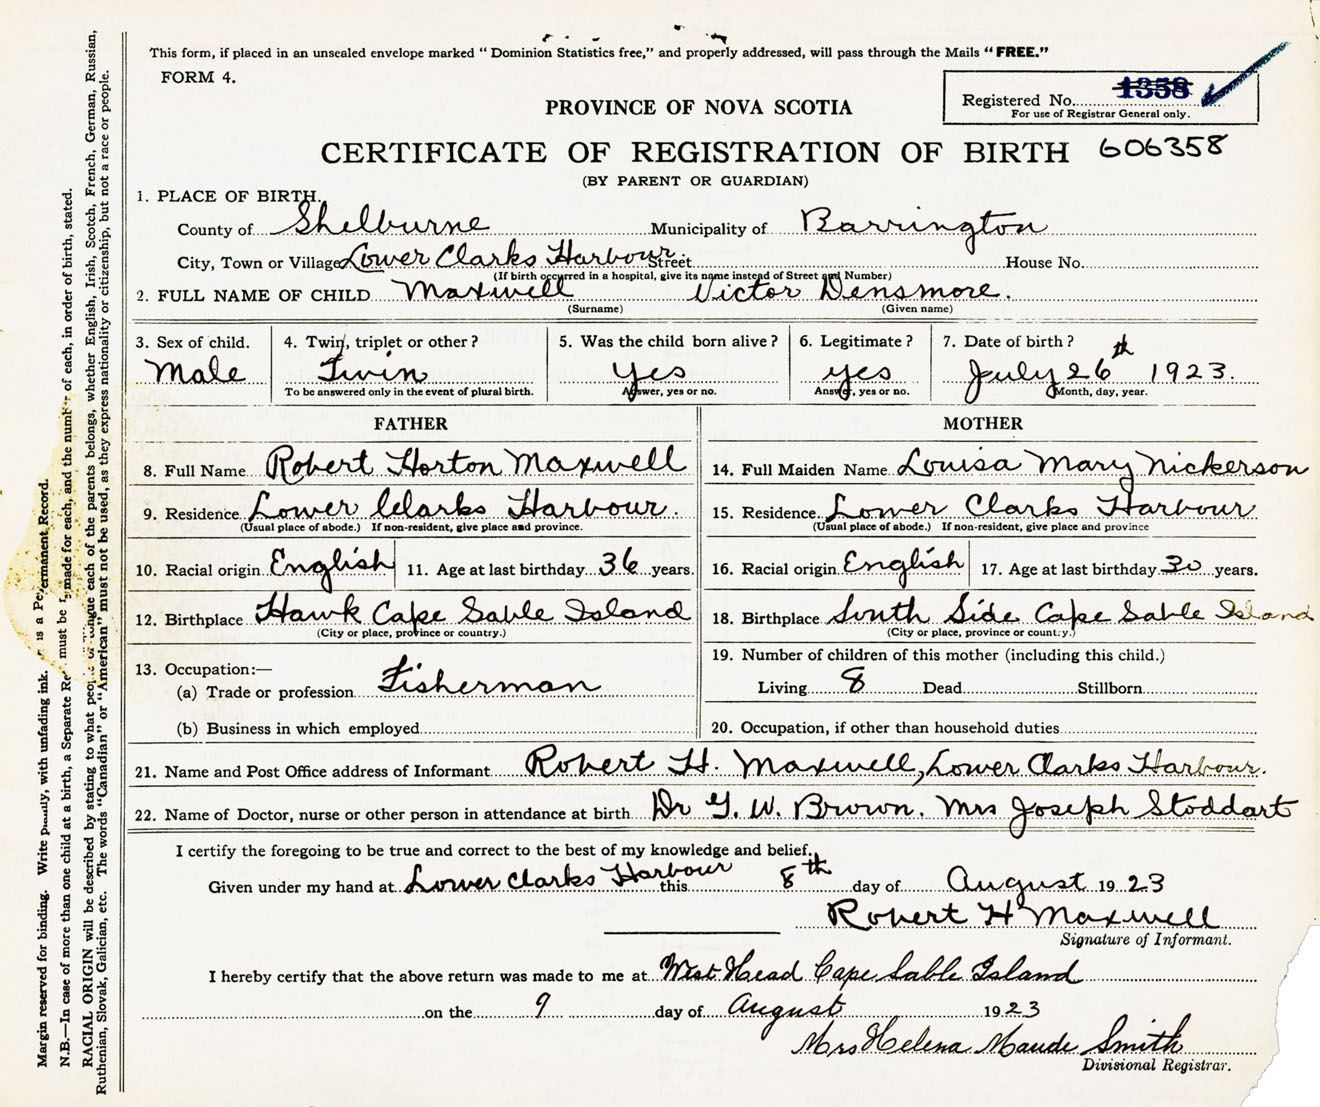 This form, if placed in an unsealed envelope marked "Dominion Statistics free," and properly addressed, will pass through the Mails "FREE."
FORM 4.
Registered No. 1358
For use of Registrar General only.
PROVINCE OF NOVA SCOTIA
CERTIFICATE OF REGISTRATION OF BIRTH 606358
(BY PARENT OR GUARDIAN)
1. PLACE OF BIRTH.
County of Shelburne Municipality of Barrington
City, Town or Village Lower Clarks Harbour Street House No.
(If birth occurred in a hospital, give its name instead of Street and Number)
2. FULL NAME OF CHILD Maxwell Victor Densmore.
(Surname) (Given name)
3. Sex of child. 4. Twin, triplet or other? 5. Was the child born alive? 6. Legitimate? 7. Date of birth?
Male Twin Yes yes July 26th 1923.
To be answered only in the event of plural birth. Answer, yes or no. Answer, yes or no. Month, day, year.
FATHER
8. Full Name Robert Horton Maxwell
9. Residence Lower Clarks Harbour.
(Usual place of abode.) If non-resident, give place and province.
10. Racial origin English 11. Age at last birthday 36 years.
12. Birthplace Hawk Cape Sable Island
(City or place, province or country.)
13. Occupation:—
(a) Trade or profession Fisherman
(b) Business in which employed
MOTHER
14. Full Maiden Name Louisa Mary Nickerson
15. Residence Lower Clarks Harbour
(Usual place of abode.) If non-resident, give place and province
16. Racial origin English 17. Age at last birthday 30 years.
18. Birthplace South Side Cape Sable Island
(City or place, province or country.)
19. Number of children of this mother (including this child.)
Living 8 Dead Stillborn
20. Occupation, if other than household duties
21. Name and Post Office address of Informant Robert H. Maxwell, Lower Clarks Harbour.
22. Name of Doctor, nurse or other person in attendance at birth Dr G. W. Brown. Mrs Joseph Stoddart
I certify the foregoing to be true and correct to the best of my knowledge and belief.
Given under my hand at Lower Clarks Harbour this 8th day of August 1923
Robert H Maxwell
Signature of Informant.
I hereby certify that the above return was made to me at West Head Cape Sable Island
on the 9 day of August 1923
Mrs Helena Maude Smith
Divisional Registrar.
Margin reserved for binding. Write plainly, with unfading ink. is a Permanent Record.
N.B.—In case of more than one child at a birth, a Separate must be made for each, and the number of each, in order of birth, stated.
RACIAL ORIGIN will be described by stating to what people or tongue each of the parents belongs, whether English, Irish, Scotch, French, German, Russian,
Ruthenian, Slovak, Galician, etc. The words "Canadian" or "American" must not be used, as they express nationality or citizenship, but not a race or people.